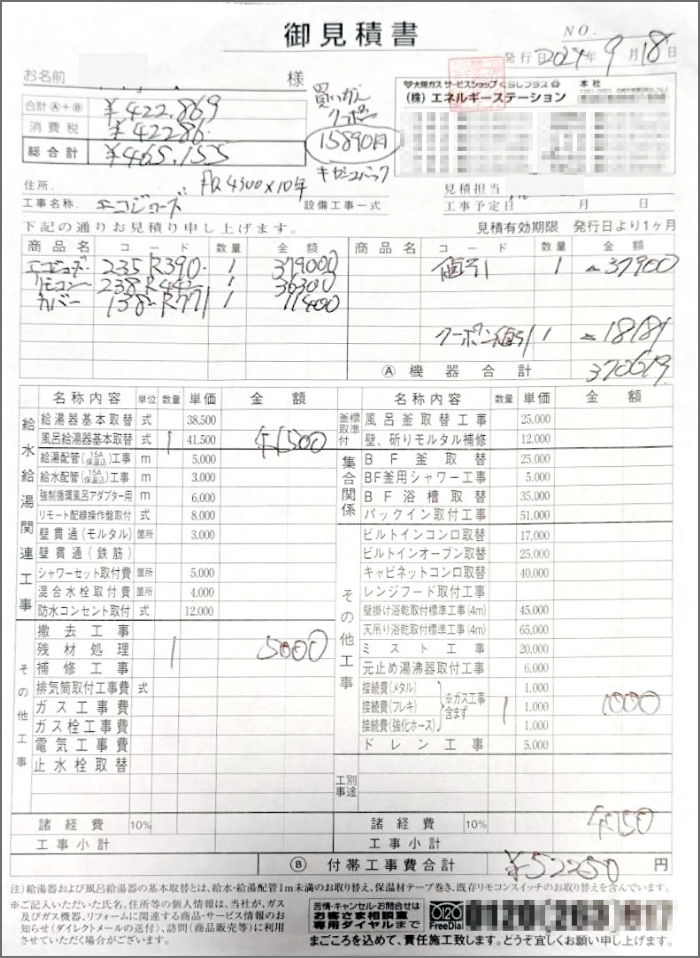 御見積書
NO.
発行日2024年9月18日
お名前 様
合計Ⓐ+Ⓑ ¥422.869
消費税 ¥42286
総合計 ¥465.155
買いがえ
クーポン
15890円
キャッシュバック
月々4300×10年
大阪ガス サービスショップ くらしプラス 本社
(株)エネルギーステーション
住所.
見積担当
工事名称. エコジョーズ 設備工事一式 工事予定日 月 日
下記の通りお見積り申し上げます。 見積有効期限 発行日より1ヶ月
商品名 コード 数量 金額 商品名 コード 数量 金額
エコジョーズ 235-R390 1 379000 値引 1 ▲37900
リモコン 238-R442 1 36300
カバー 138-R771 1 11400
クーポン値引 1 ▲18181
Ⓐ 機器合計 370619
名称内容 単位 数量 単価 金額 名称内容 数量 単価 金額
給水給湯関連工事
給湯器基本取替 式 38,500
風呂給湯器基本取替 式 1 41,500 41500
給湯配管(15A保温込)工事 m 5,000
給水配管(15A保温込)工事 m 3,000
強制循環風呂アダプター用 m 6,000
リモート配線操作盤取付 式 8,000
壁貫通(モルタル) 箇所 3,000
壁貫通(鉄筋)
シャワーセット取付費 箇所 5,000
混合水栓取付費 箇所 4,000
防水コンセント取付 式 12,000
その他工事
撤去工事
残材処理 1 5000
補修工事
排気筒取付工事費 式
ガス工事費
ガス栓工事費
電気工事費
止水栓取替
諸経費 10%
工事小計
釜標取準付
風呂釜取替工事 25,000
壁、斫りモルタル補修 12,000
集合関係
BF釜取替 25,000
BF釜用シャワー工事 5,000
BF浴槽取替 35,000
パックイン取付工事 51,000
その他工事
ビルトインコンロ取替 17,000
ビルトインオーブン取替 25,000
キャビネットコンロ取替 40,000
レンジフード取付工事
壁掛け浴乾取付標準工事(4m) 45,000
天吊り浴乾取付標準工事(4m) 65,000
ミスト工事 20,000
元止め湯沸器取付工事 6,000
接続費(メタル) 1,000
接続費(フレキ) ※ガス工事含まず 1 1,000 1000
接続費(強化ホース) 1,000
ドレン工事 5,000
工別事途
諸経費 10% 4750
工事小計
Ⓑ 付帯工事費合計 ¥52250 円
注)給湯器および風呂給湯器の基本取替とは、給水・給湯配管1m未満のお取り替え、保温材テープ巻き、既存リモコンスイッチのお取り替えを含んでいます。
※ご記入いただいた氏名、住所等の個人情報は、当社が、ガス
及びガス機器、リフォームに関連する商品・サービス情報のお
知らせ(ダイレクトメールの送付)、訪問(商品販売等)に利用
させていただく場合がございます。
苦情・キャンセル・お問合せは
お客さま相談室
専用ダイヤルまで
FreeDial
まごころを込めて、責任施工致します。どうぞ宜しくお願い申し上げます。